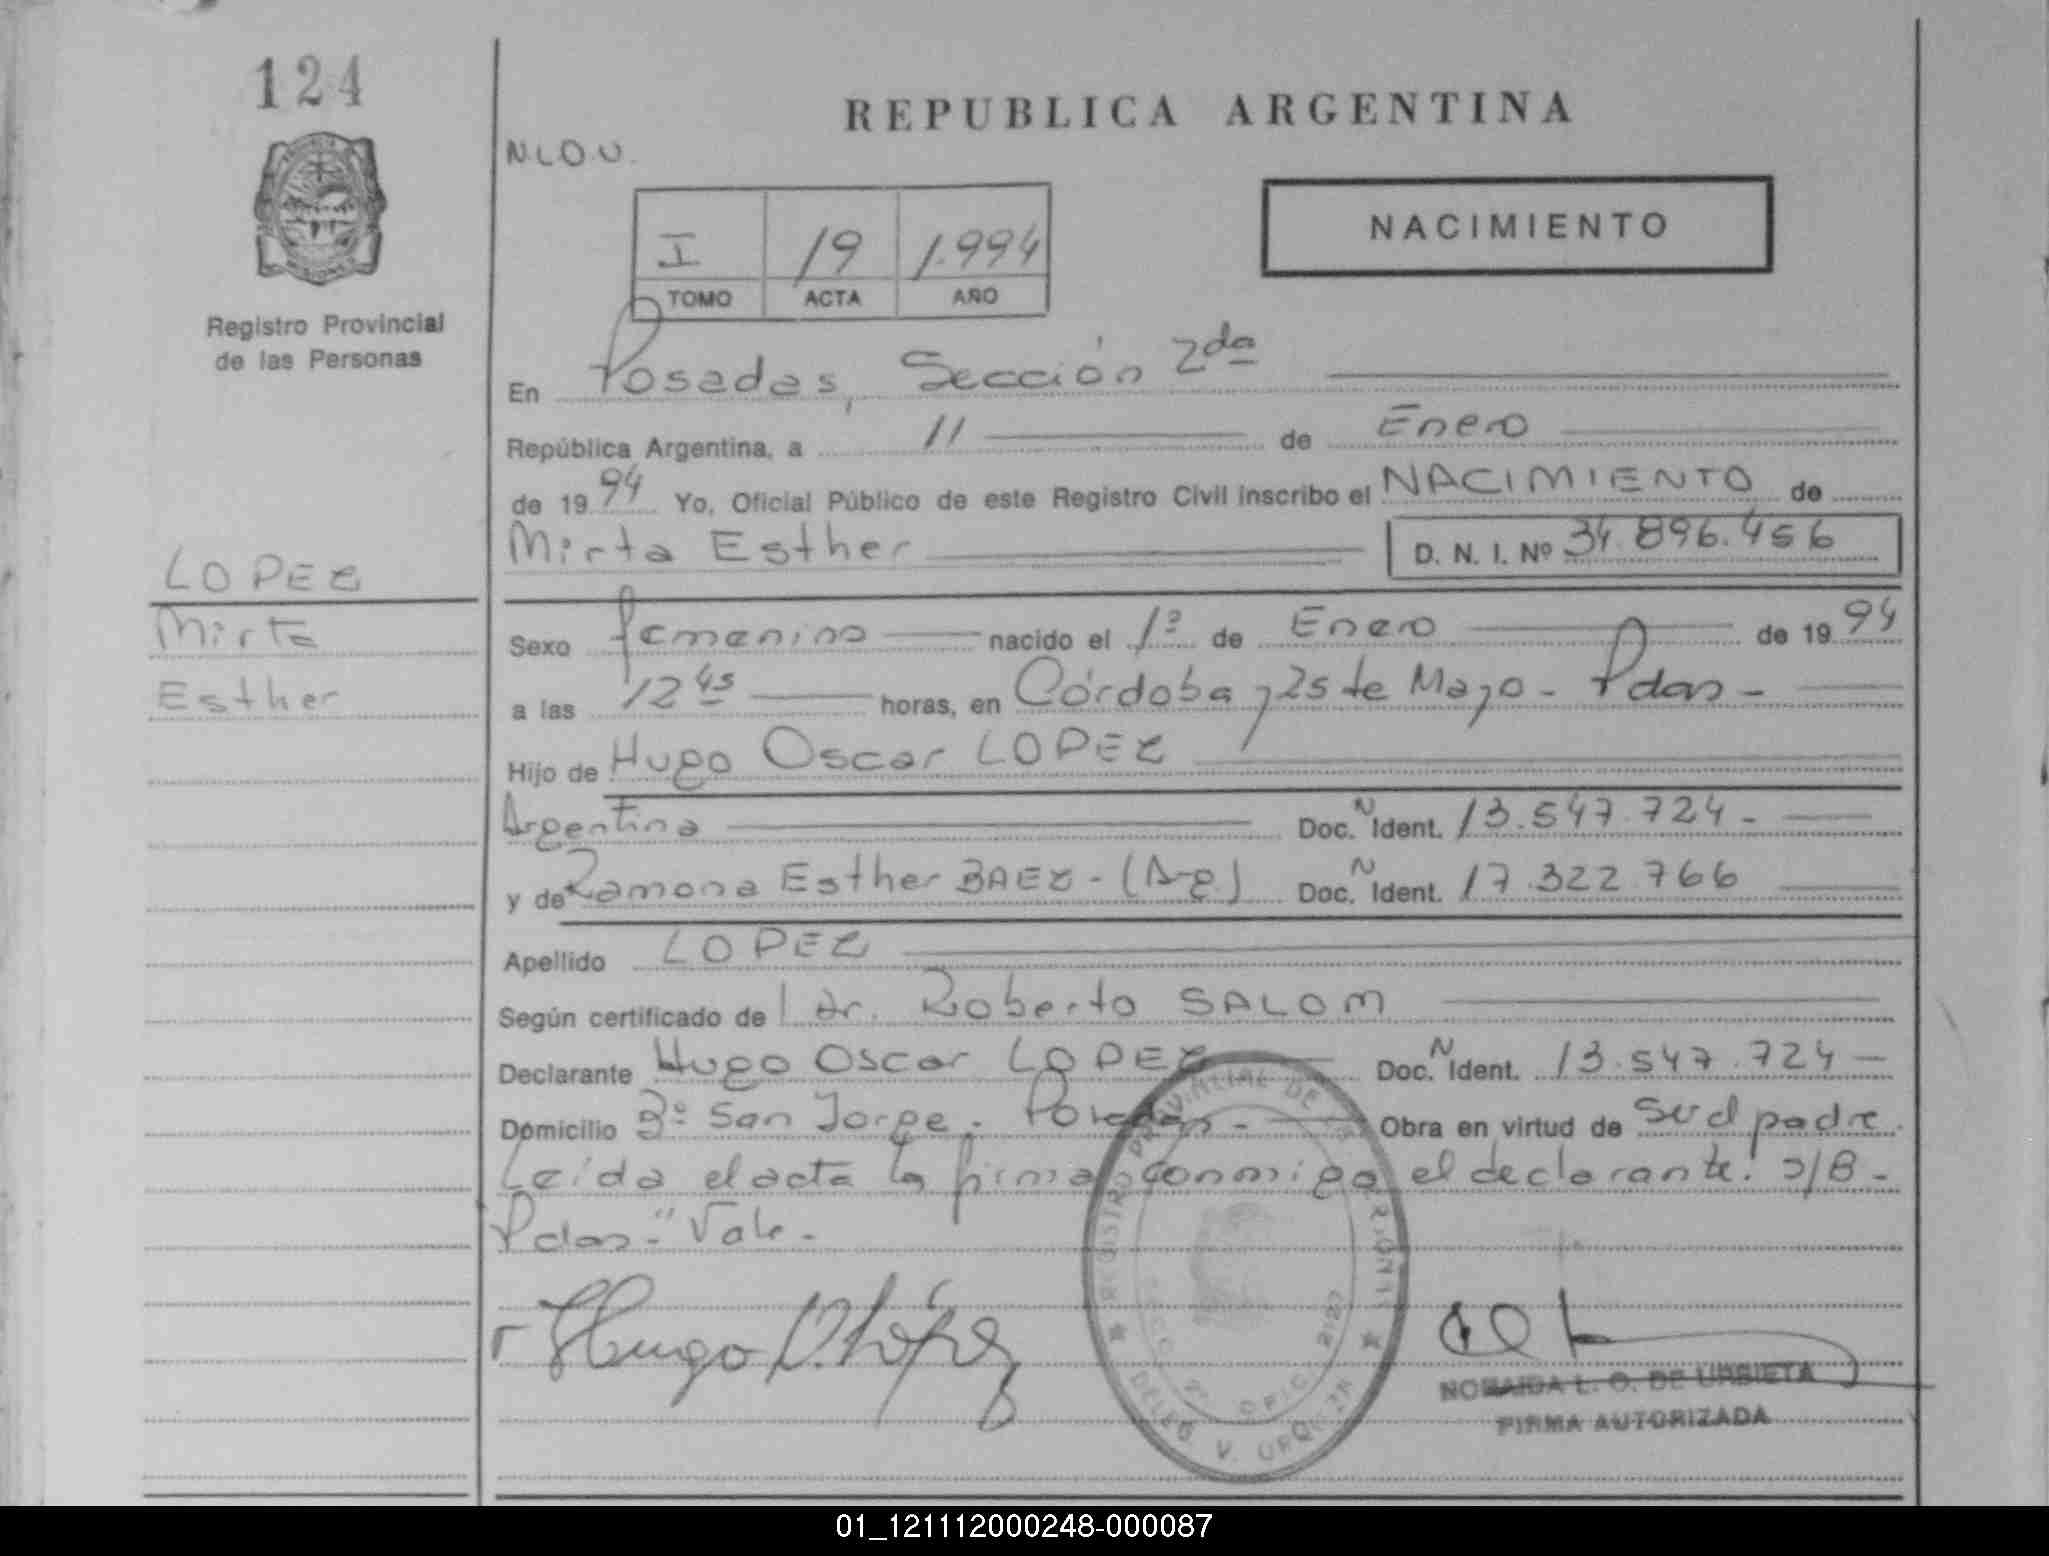 124
REPUBLICA ARGENTINA
N.L.O.U.
NACIMIENTO
I 19 1.994
TOMO ACTA AÑO
Registro Provincial
de las Personas
En Posadas, Sección 2da
República Argentina, a 11 de Enero
de 1994 Yo, Oficial Público de este Registro Civil inscribo el NACIMIENTO de
Mirta Esther D. N. I. Nº 34.896.456
LOPEZ
Mirta
Esther
Sexo femenino nacido el 1º de Enero de 1994
a las 12 45 horas, en Córdoba y 25 de Mayo - Pdas -
Hijo de Hugo Oscar LOPEZ
Argentina Doc. N Ident. 13.547.724 -
y de Ramona Esther BAEZ - (Arg) Doc. N Ident. 17.322.766
Apellido LOPEZ
Según certificado de Dr. Roberto SALOM
Declarante Hugo Oscar LOPEZ Doc. N Ident. 13.547.724 -
Domicilio Bº San Jorge. Posadas - Obra en virtud de ser el padre.
Leída el acta la firma conmigo el declarante. S/B -
"Pdas-" Vale -
Hugo O. López
REGISTRO PROVINCIAL DE LAS PERSONAS
SECC. 2ª OFIC.
DELEG. V. URQUIZA
NORAIDA L. O. DE URBIETA
FIRMA AUTORIZADA
01_121112000248-000087